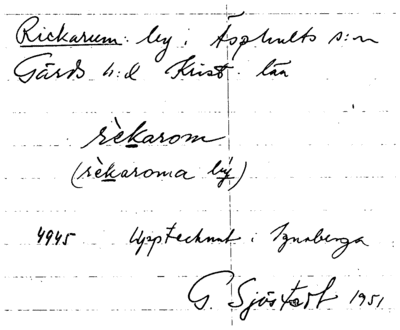 Rickarum: by i Äsphults s:n
Gärds h:d Krist. län
rèkarom
(rèkaroma by)
4945 Upptecknat i Ignaberga
G. Sjöstedt 1951